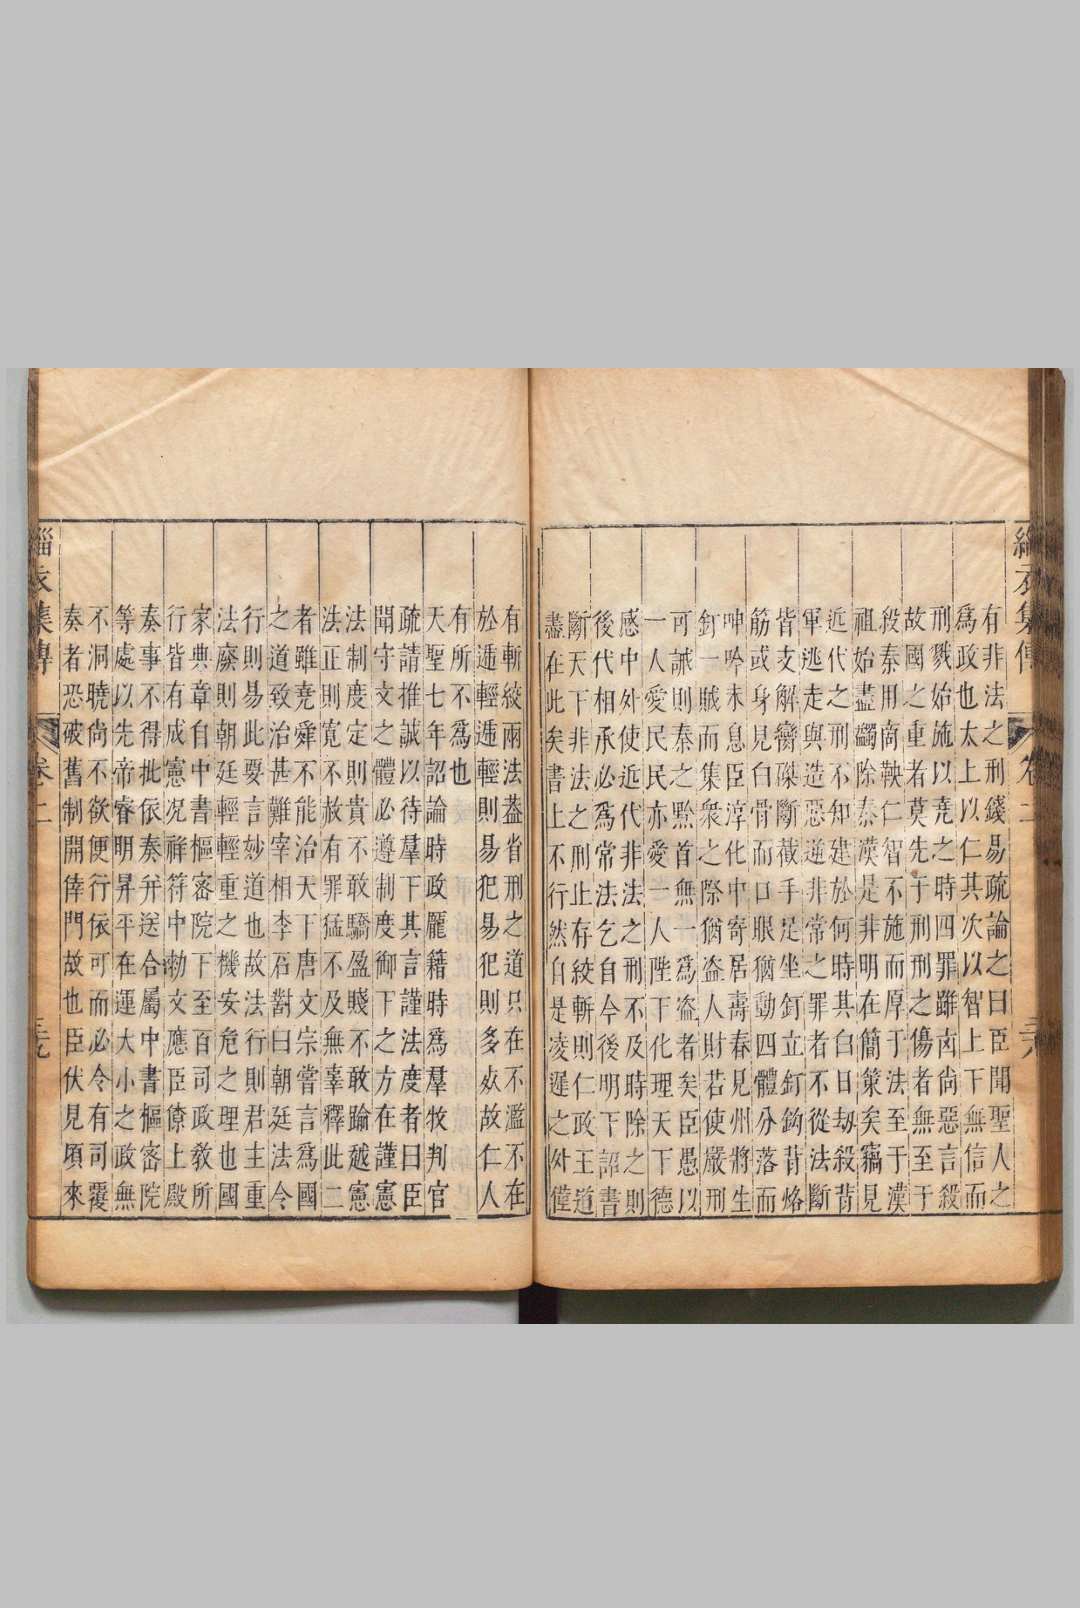 緇衣集傳 卷二 三八
有非法之刑錢易疏論之曰臣聞聖人之
爲政也太上以仁其次以智上下無信而
刑戮始施以堯之時四罪雖凶尚惡言殺
故國之重者莫先于刑刑之傷者無至于
殺秦用商鞅仁智不施而厚于法至于漢
祖始盡蠲除秦漢是非明在簡策矣竊見
近代之刑不知建於何時其白日劫殺背
軍逃走與造惡逆非常之罪者不從法斷
皆支解臠磔斷截手足坐釘立釘鈎背烙
筋或身見白骨而口眼猶動四體分落而
呻吟未息臣淳化中寄居壽春見州將生
釘一賊而集衆之際猶盜人財若使嚴刑
可誡則秦之黔首無一爲盜者矣臣愚以
一人愛民民亦愛一人陛下化理天下德
感中外使近代非法之刑不及時除之則
後代相承必爲常法乞自今後明下詔書
斷天下非法之刑止存絞斬則仁政王道
盡在此矣書上不行然自是凌遲之外僅
有斬絞兩法蓋省刑之道只在不濫不在
於遞輕遞輕則易犯易犯則多死故仁人
有所不爲也
天聖七年詔論時政龎籍時爲羣牧判官
疏請推誠以待羣下其言謹法度者曰臣
聞守文之體必遵制度御下之方在謹憲
法制度定則貴不敢驕盈賤不敢踰越憲
法正則寛不赦有罪猛不及無辜釋此二
者雖堯舜不能治天下唐文宗嘗言爲國
之道致治甚難宰相李石對曰朝廷法令
行則易此要言妙道也故法行則君主重
法廢則朝廷輕輕重之機安危之理也國
家典章自中書樞密院下至百司政教所
行皆有成憲况祥符中勅文應臣僚上殿
奏事不得批依奏并送合屬中書樞密院
等處以先帝睿明昇平在運大小之政無
不洞曉尚不欲便行依可而必令有司覆
奏者恐破舊制開倖門故也臣伏見頃來
緇衣集傳 卷二 三九